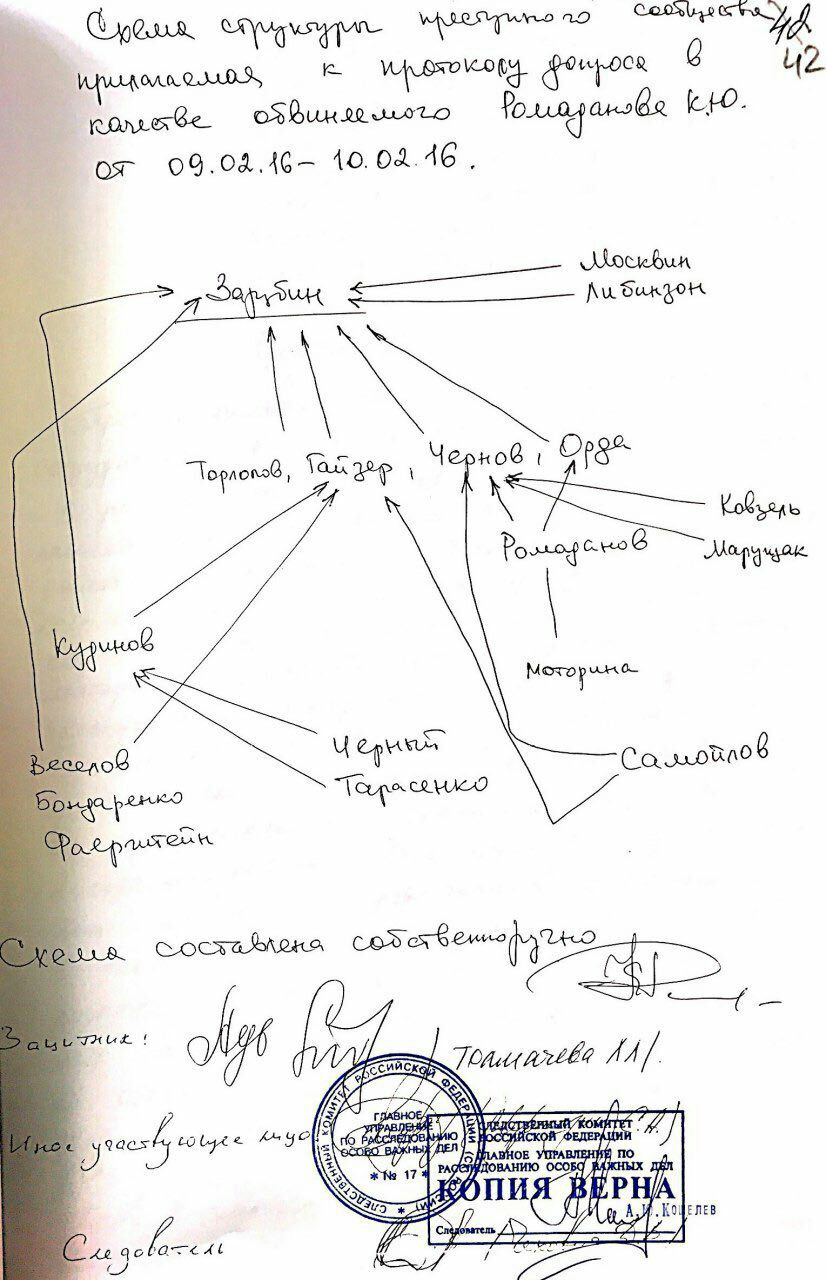 Схема структуры преступного сообщества
48
42
прилагаемая к протоколу допроса в
качестве обвиняемого Ромаданова К.Ю.
от 09.02.16 – 10.02.16.
Москвин
Зарубин
Либинзон
Торлопов, Гайзер, Чернов, Орда
Ковзель
Ромаданов
Марущак
Кудинов
Моторина
Черный
Самойлов
Веселов
Тарасенко
Бондаренко
Фаерштейн
Схема составлена собственноручно
Защитник:
Толмачева Х.Л.
СЛЕДСТВЕННЫЙ КОМИТЕТ РОССИЙСКОЙ ФЕДЕРАЦИИ
ГЛАВНОЕ
УПРАВЛЕНИЕ
ПО РАССЛЕДОВАНИЮ
ОСОБО ВАЖНЫХ ДЕЛ
* № 17 *
Иное участвующее лицо
СЛЕДСТВЕННЫЙ КОМИТЕТ
РОССИЙСКОЙ ФЕДЕРАЦИИ
ГЛАВНОЕ УПРАВЛЕНИЕ ПО
РАССЛЕДОВАНИЮ ОСОБО ВАЖНЫХ ДЕЛ
КОПИЯ ВЕРНА
А.Ю.Кошелев
Следователь
Следователь